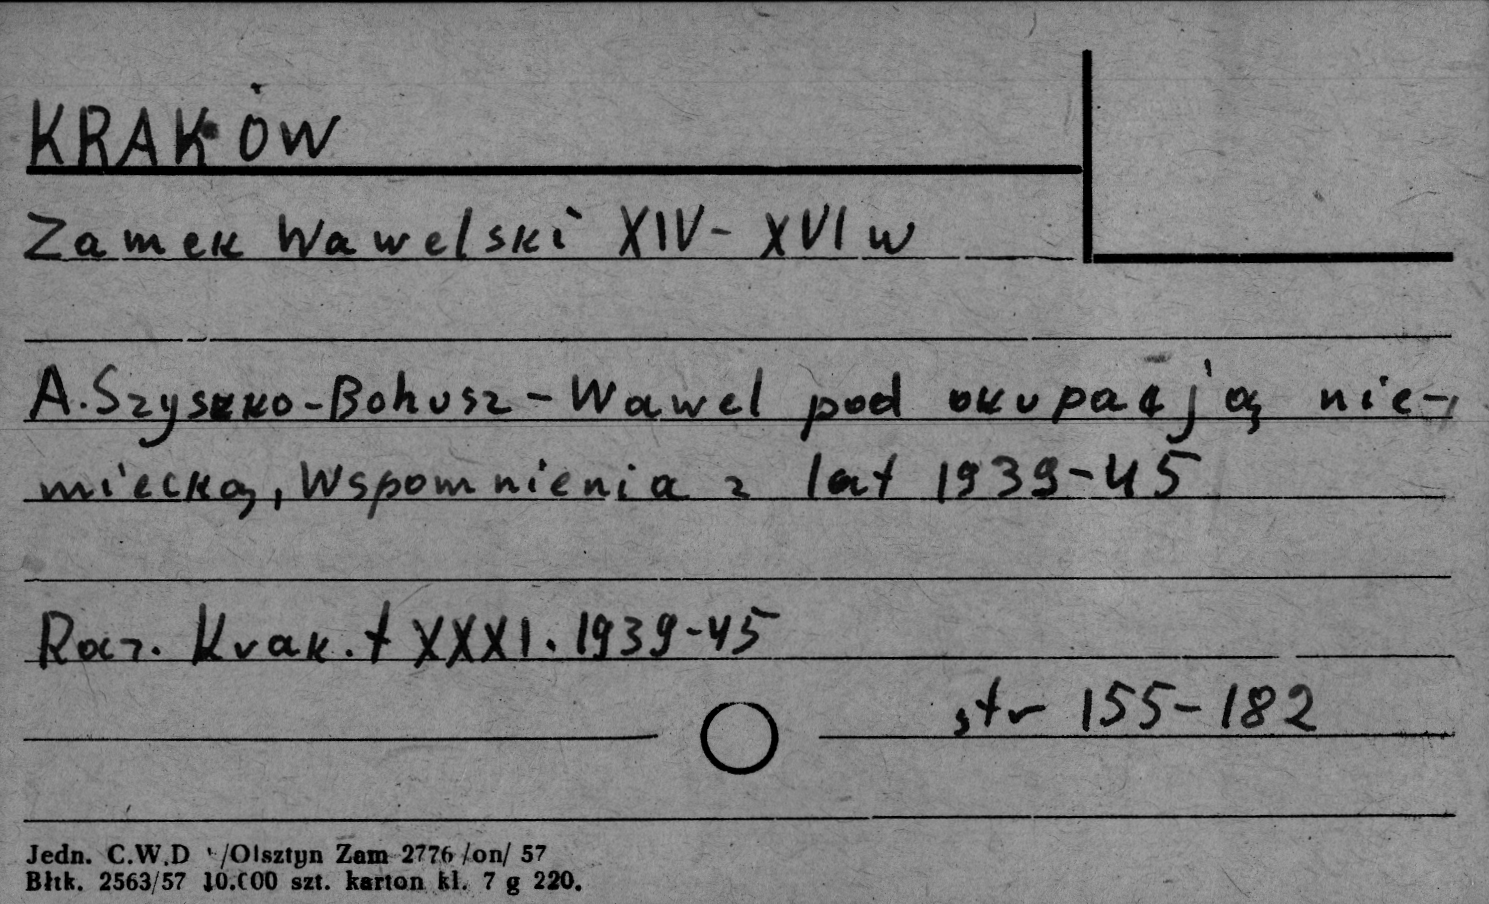 KRAKÓW
Zamek Wawelski XIV - XVI w
A. Szyszko-Bohusz - Wawel pod okupacją nie-
miecką, Wspomnienia z lat 1939-45
Rocz. Krak. t XXXI. 1939-45
str 155-182
Jedn. C.W.D /Olsztyn Zam 2776 /on/ 57
Błtk. 2563/57 10.000 szt. karton kl. 7 g 220.